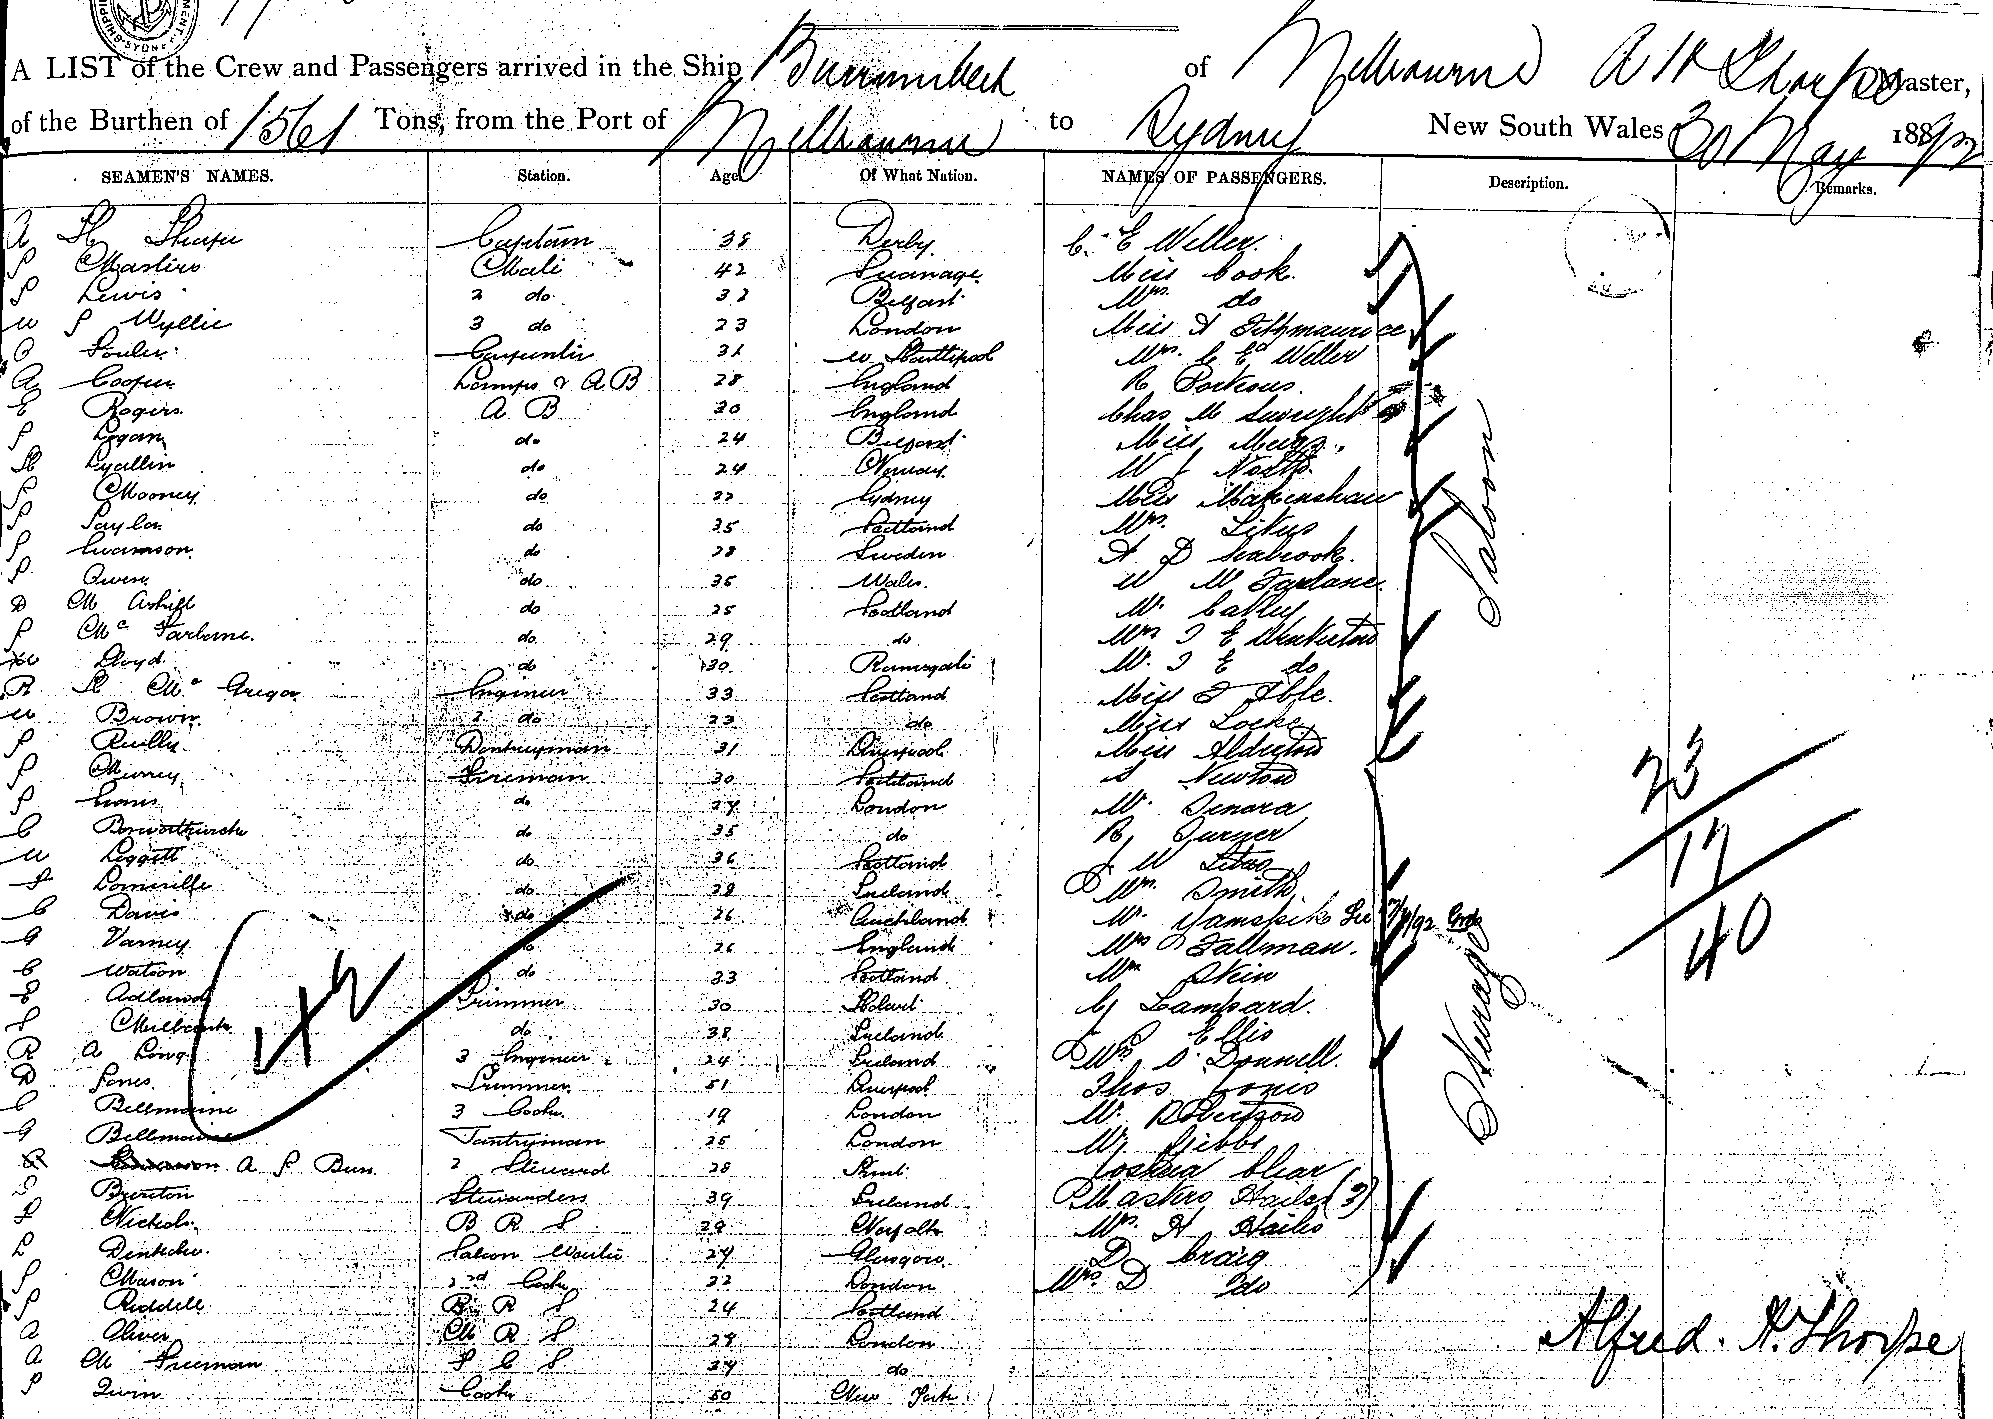 A LIST of the Crew and Passengers arrived in the Ship Burrumbeet of Melbourne A H Thorpe Master,
of the Burthen of 1561 Tons, from the Port of Melbourne to Sydney New South Wales 30 May 1892
SEAMEN'S NAMES. Station. Age Of What Nation. NAMES OF PASSENGERS. Description. Remarks.
A H Thorpe Captain 38 Derby C. E Weller
Masters Mate 42 Swanage Miss Cook
J Lewis 2 do 32 Belfast Mrs do
W J Wyllie 3 do 23 London Miss A Fitzmaurice
Carpenter 31 W Hartlepool Mrs. C E Weller
A Cooper Lamps & A B 28 England R Porteous
E Rogers A B 30 England Chas M
J Logan do 24 Belfast Miss
H do 24 Norway W J North
J Mooney do 22 Sydney Miss
J Taylor do 35 Scotland Mrs. Titus
J Swanson do 28 Sweden A D Seabrook
J Owen do 35 Wales W M Farlane
D M do 25 Scotland W.
J Mc Farlane do 29 do Mrs J E
Lloyd do 30 Ramsgate W. J E do
R H Mc Gregor Engineer 33 Scotland Miss F Able
W Brown 2 do 23 do Miss Locke
J Reilly Donkeyman 31 Liverpool Miss
J Murrey Fireman 30 Scotland S Newton
J Evans do 24 London W.
C do 35 do R Turner
W Leggett do 36 Scotland J W Titus
J do 28 Ireland Mrs. Smith
C Davis do 26 Auckland W.
G Varney do 26 England Mrs Tallman
C Watson do 33 Scotland Mrs Skin
E Adland Trimmer 30 Hobart G Lampard
J do 38 Ireland J P Ellis
R A Long 3 Engineer 24 Ireland Mrs O'Donnell
D Jones Trimmer 51 Liverpool Thos Jones
C Bellmaine 3 Cook 19 London W. Robertson
G Bellmaine Pantryman 25 London W. Gibbs
A J Bun 2 Steward 28 Kent Joshua Clear
Brereton Stewardess 39 Ireland Masters Hailes (3)
J Nichols B R S 29 Norfolk Mrs. H Hailes
L Saloon Waiter 24 Glasgow D Craig
J Mason 2nd Cook 32 London Mrs. D do
J Riddell B R S 24 Scotland
A Oliver M R S 28 London
A M Freeman S C S 24 do
P Quin Cook 50 New York
Saloon
Steerage
23
17
40
42
Alfred. H. Thorpe